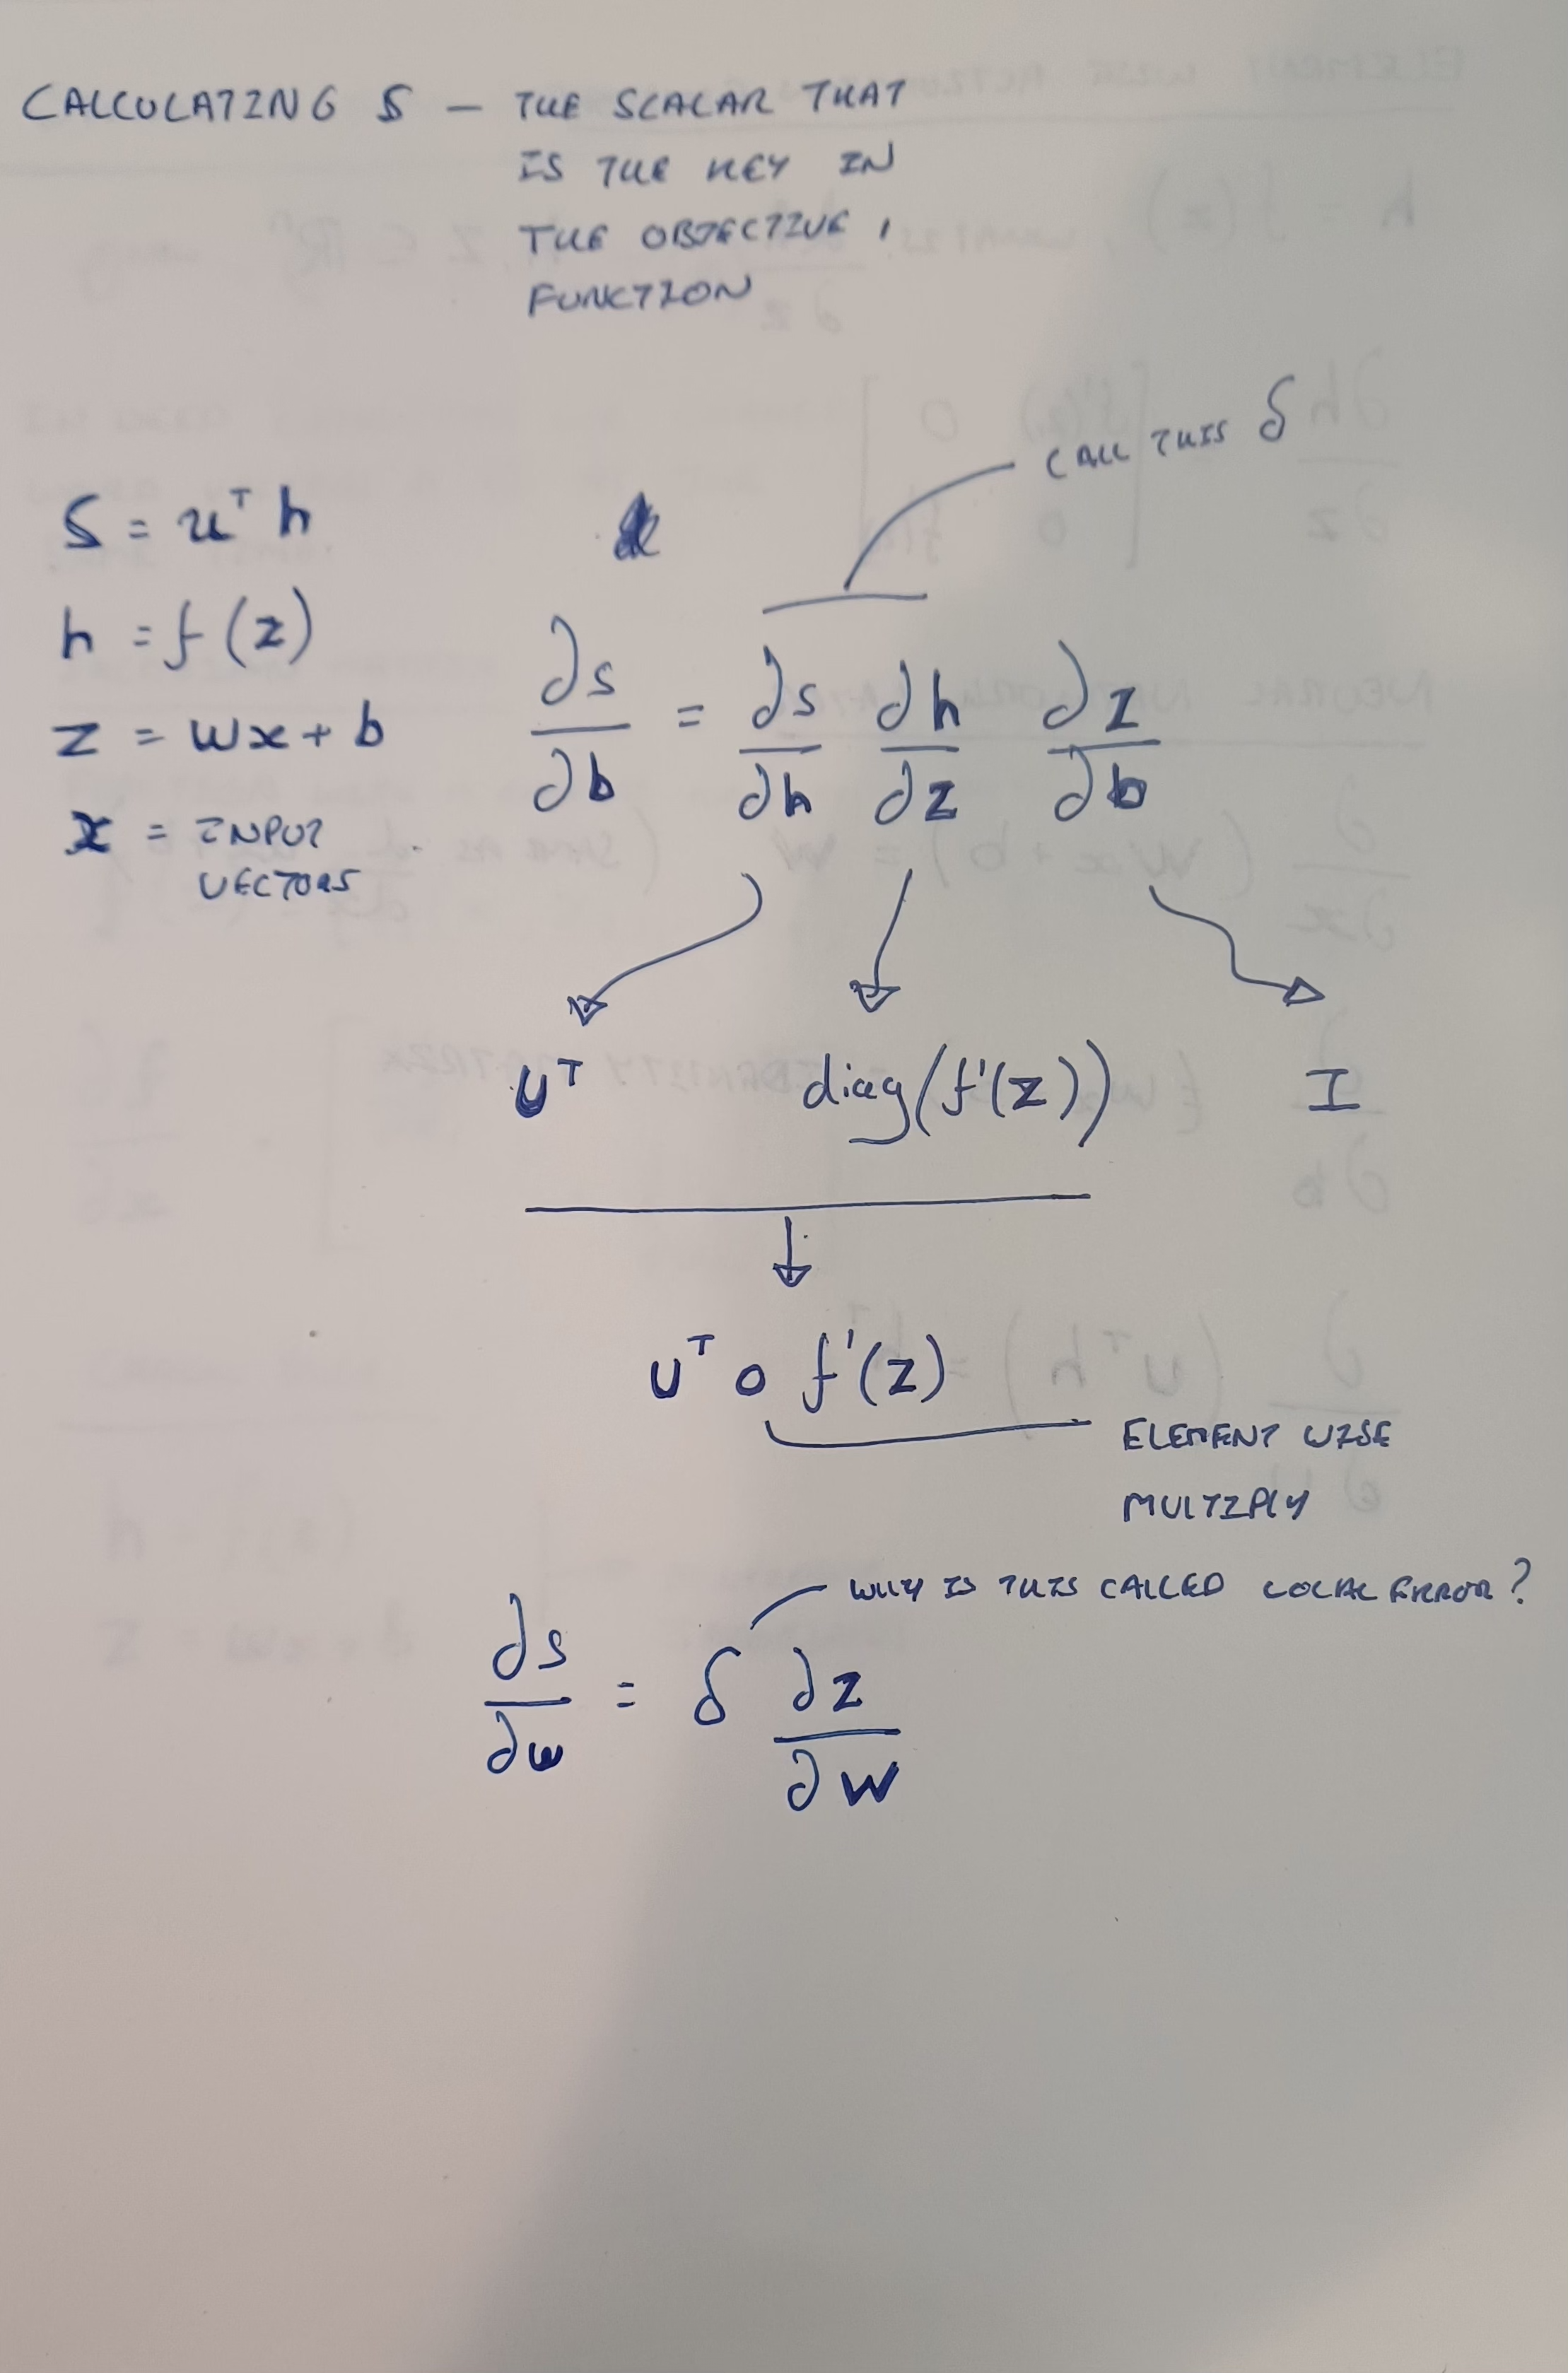 CALCULATING S — THE SCALAR THAT
IS THE KEY IN
THE OBJECTIVE,
FUNCTION
CALL THIS δ
S = u^T h
h = f(z)
z = wx + b
x = INPUT
VECTORS
∂s/∂b = ∂s/∂h ∂h/∂z ∂z/∂b
U^T diag(f'(z)) I
U^T ∘ f'(z)
ELEMENT WISE
MULTIPLY
WHY IS THIS CALLED LOCAL ERROR?
∂s/∂w = δ ∂z/∂W